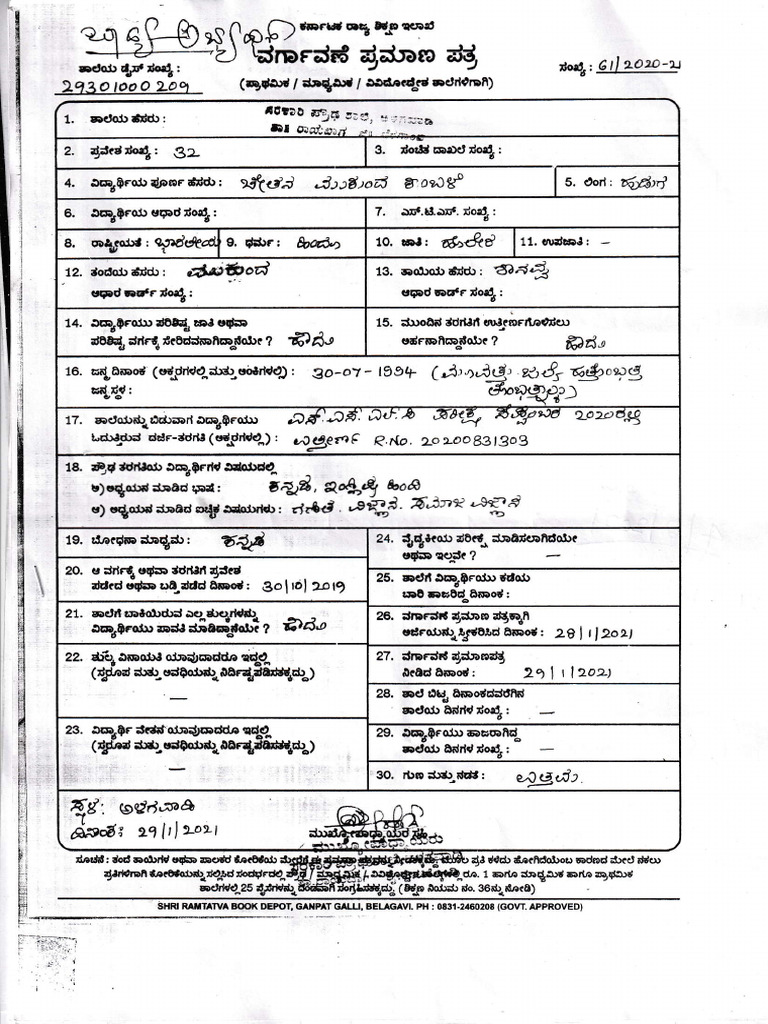 ಬಾಹ್ಯ ಅಭ್ಯರ್ಥಿ
ಕರ್ನಾಟಕ ರಾಜ್ಯ ಶಿಕ್ಷಣ ಇಲಾಖೆ
ವರ್ಗಾವಣೆ ಪ್ರಮಾಣ ಪತ್ರ
ಶಾಲೆಯ ಡೈಸ್ ಸಂಖ್ಯೆ : 29301000209
(ಪ್ರಾಥಮಿಕ / ಮಾಧ್ಯಮಿಕ / ವಿವಿದೋದ್ದೇಶ ಶಾಲೆಗಳಿಗಾಗಿ)
ಸಂಖ್ಯೆ : 61/2020-21
1. ಶಾಲೆಯ ಹೆಸರು : ಸರಕಾರಿ ಪ್ರೌಢ ಶಾಲೆ, ಅಳಗವಾಡಿ
ತಾ॥ ರಾಯಬಾಗ ಜಿ॥ ಬೆಳಗಾಂವ
2. ಪ್ರವೇಶ ಸಂಖ್ಯೆ : 32
3. ಸಂಚಿತ ದಾಖಲೆ ಸಂಖ್ಯೆ :
4. ವಿದ್ಯಾರ್ಥಿಯ ಪೂರ್ಣ ಹೆಸರು : ಚೇತನ ಮುಕುಂದ ಕಾಂಬಳೆ
5. ಲಿಂಗ : ಹುಡುಗ
6. ವಿದ್ಯಾರ್ಥಿಯ ಆಧಾರ ಸಂಖ್ಯೆ :
7. ಎಸ್.ಟಿ.ಎಸ್. ಸಂಖ್ಯೆ :
8. ರಾಷ್ಟ್ರೀಯತೆ : ಭಾರತೀಯ 9. ಧರ್ಮ : ಹಿಂದೂ
10. ಜಾತಿ : ಹೊಲೇರ 11. ಉಪಜಾತಿ : –
12. ತಂದೆಯ ಹೆಸರು : ಮುಕುಂದ
ಆಧಾರ ಕಾರ್ಡ್ ಸಂಖ್ಯೆ :
13. ತಾಯಿಯ ಹೆಸರು : ಶಾನವ್ವ
ಆಧಾರ ಕಾರ್ಡ್ ಸಂಖ್ಯೆ :
14. ವಿದ್ಯಾರ್ಥಿಯು ಪರಿಶಿಷ್ಟ ಜಾತಿ ಅಥವಾ
ಪರಿಶಿಷ್ಟ ವರ್ಗಕ್ಕೆ ಸೇರಿದವನಾಗಿದ್ದಾನೆಯೇ ? ಹೌದು
15. ಮುಂದಿನ ತರಗತಿಗೆ ಉತ್ತೀರ್ಣಗೊಳಿಸಲು
ಅರ್ಹನಾಗಿದ್ದಾನೆಯೇ ? ಹೌದು
16. ಜನ್ಮ ದಿನಾಂಕ (ಅಕ್ಷರಗಳಲ್ಲಿ ಮತ್ತು ಅಂಕಿಗಳಲ್ಲಿ) : 30-07-1994 (ಮೂವತ್ತು ಜುಲೈ ಹತ್ತೊಂಬತ್ತ
ಜನ್ಮ ಸ್ಥಳ : ತೊಂಬತ್ನಾಲ್ಕು)
17. ಶಾಲೆಯನ್ನು ಬಿಡುವಾಗ ವಿದ್ಯಾರ್ಥಿಯು ಎಸ್.ಎಸ್.ಎಲ್.ಸಿ ಪರೀಕ್ಷೆ ಸೆಪ್ಟಂಬರ 2020ರಲ್ಲಿ
ಓದುತ್ತಿರುವ ದರ್ಜೆ-ತರಗತಿ (ಅಕ್ಷರಗಳಲ್ಲಿ) : ಉತ್ತೀರ್ಣ R.No. 20200831303
18. ಪ್ರೌಢ ತರಗತಿಯ ವಿದ್ಯಾರ್ಥಿಗಳ ವಿಷಯದಲ್ಲಿ
ಅ) ಅಧ್ಯಯನ ಮಾಡಿದ ಭಾಷೆ : ಕನ್ನಡ, ಇಂಗ್ಲೀಷ ಹಿಂದಿ
ಆ) ಅಧ್ಯಯನ ಮಾಡಿದ ಐಚ್ಛಿಕ ವಿಷಯಗಳು : ಗಣಿತ. ವಿಜ್ಞಾನ. ಸಮಾಜ ವಿಜ್ಞಾನ
19. ಬೋಧನಾ ಮಾಧ್ಯಮ : ಕನ್ನಡ
24. ವೈದ್ಯಕೀಯ ಪರೀಕ್ಷೆ ಮಾಡಿಸಲಾಗಿದೆಯೇ
ಅಥವಾ ಇಲ್ಲವೇ ? –
20. ಆ ವರ್ಗಕ್ಕೆ ಅಥವಾ ತರಗತಿಗೆ ಪ್ರವೇಶ
ಪಡೇದ ಅಥವಾ ಬಡ್ತಿ ಪಡೆದ ದಿನಾಂಕ : 30/10/2019
25. ಶಾಲೆಗೆ ವಿದ್ಯಾರ್ಥಿಯು ಕಡೆಯ
ಬಾರಿ ಹಾಜರಿದ್ದ ದಿನಾಂಕ :
21. ಶಾಲೆಗೆ ಬಾಕಿಯಿರುವ ಎಲ್ಲ ಶುಲ್ಕಗಳನ್ನು
ವಿದ್ಯಾರ್ಥಿಯು ಪಾವತಿ ಮಾಡಿದ್ದಾನೆಯೇ ? ಹೌದು
26. ವರ್ಗಾವಣೆ ಪ್ರಮಾಣ ಪತ್ರಕ್ಕಾಗಿ
ಅರ್ಜಿಯನ್ನು ಸ್ವೀಕರಿಸಿದ ದಿನಾಂಕ : 28/1/2021
22. ಶುಲ್ಕ ವಿನಾಯತಿ ಯಾವುದಾದರೂ ಇದ್ದಲ್ಲಿ
(ಸ್ವರೂಪ ಮತ್ತು ಅವಧಿಯನ್ನು ನಿರ್ದಿಷ್ಟಪಡಿಸತಕ್ಕದ್ದು)
–
27. ವರ್ಗಾವಣೆ ಪ್ರಮಾಣಪತ್ರ
ನೀಡಿದ ದಿನಾಂಕ : 29/1/2021
28. ಶಾಲೆ ಬಿಟ್ಟ ದಿನಾಂಕದವರೆಗಿನ
ಶಾಲೆಯ ದಿನಗಳ ಸಂಖ್ಯೆ : –
23. ವಿದ್ಯಾರ್ಥಿ ವೇತನ ಯಾವುದಾದರೂ ಇದ್ದಲ್ಲಿ
(ಸ್ವರೂಪ ಮತ್ತು ಅವಧಿಯನ್ನು ನಿರ್ದಿಷ್ಟಪಡಿಸತಕ್ಕದ್ದು)
–
29. ವಿದ್ಯಾರ್ಥಿಯು ಹಾಜರಾಗಿದ್ದ
ಶಾಲೆಯ ದಿನಗಳ ಸಂಖ್ಯೆ : –
30. ಗುಣ ಮತ್ತು ನಡತೆ : ಉತ್ತಮ.
ಸ್ಥಳ: ಅಳಗವಾಡಿ
ದಿನಾಂಕ: 29/1/2021
ಮುಖ್ಯೋಪಾಧ್ಯಾಯರ ಸಹಿ
ಮುಖ್ಯೋಪಾಧ್ಯಾಯರು
ಸೂಚನೆ : ತಂದೆ ತಾಯಿಗಳ ಅಥವಾ ಪಾಲಕರ ಕೋರಿಕೆಯ ಮೇರೆಗೆ ಈ ಪ್ರಮಾಣ ಪತ್ರವನ್ನು ನೀಡತಕ್ಕದ್ದು. ಮೂಲ ಪ್ರತಿ ಕಳೆದು ಹೋಗಿದೆಯೆಂಬ ಕಾರಣದ ಮೇಲೆ ನಕಲು
ಪ್ರತಿಗಳಿಗಾಗಿ ಕೋರಿಕೆಯನ್ನು ಸಲ್ಲಿಸಿದ ಸಂದರ್ಭದಲ್ಲಿ ಪ್ರೌಢ / ಮಾಧ್ಯಮಿಕ / ವಿವಿದೋದ್ದೇಶ ಶಾಲೆಗಳಲ್ಲಿ ರೂ. 1 ಹಾಗೂ ಮಾಧ್ಯಮಿಕ ಹಾಗೂ ಪ್ರಾಥಮಿಕ
ಶಾಲೆಗಳಲ್ಲಿ 25 ಪೈಸೆಗಳನ್ನು ದಂಡವಾಗಿ ಸಂಗ್ರಹಿಸತಕ್ಕದ್ದು. (ಶಿಕ್ಷಣ ನಿಯಮ ನಂ. 36ನ್ನು ನೋಡಿ)
SHRI RAMTATVA BOOK DEPOT, GANPAT GALLI, BELAGAVI. PH : 0831-2460208 (GOVT. APPROVED)